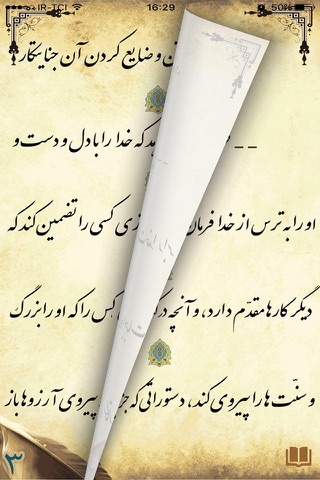 IR-TCI 16:29 50%
ن و ضایع کردن آن جنایتکار
ید که خدا را با دل و دست و
او را به ترس از خدا فرمان زی کسی را تضمین کند که
دیگر کارها مقدّم دارد، و آنچه در کس را که او را بزرگ
و سنّت ها را پیروی کند، دستوراتی که جز پیروی آرزوها باز
۳